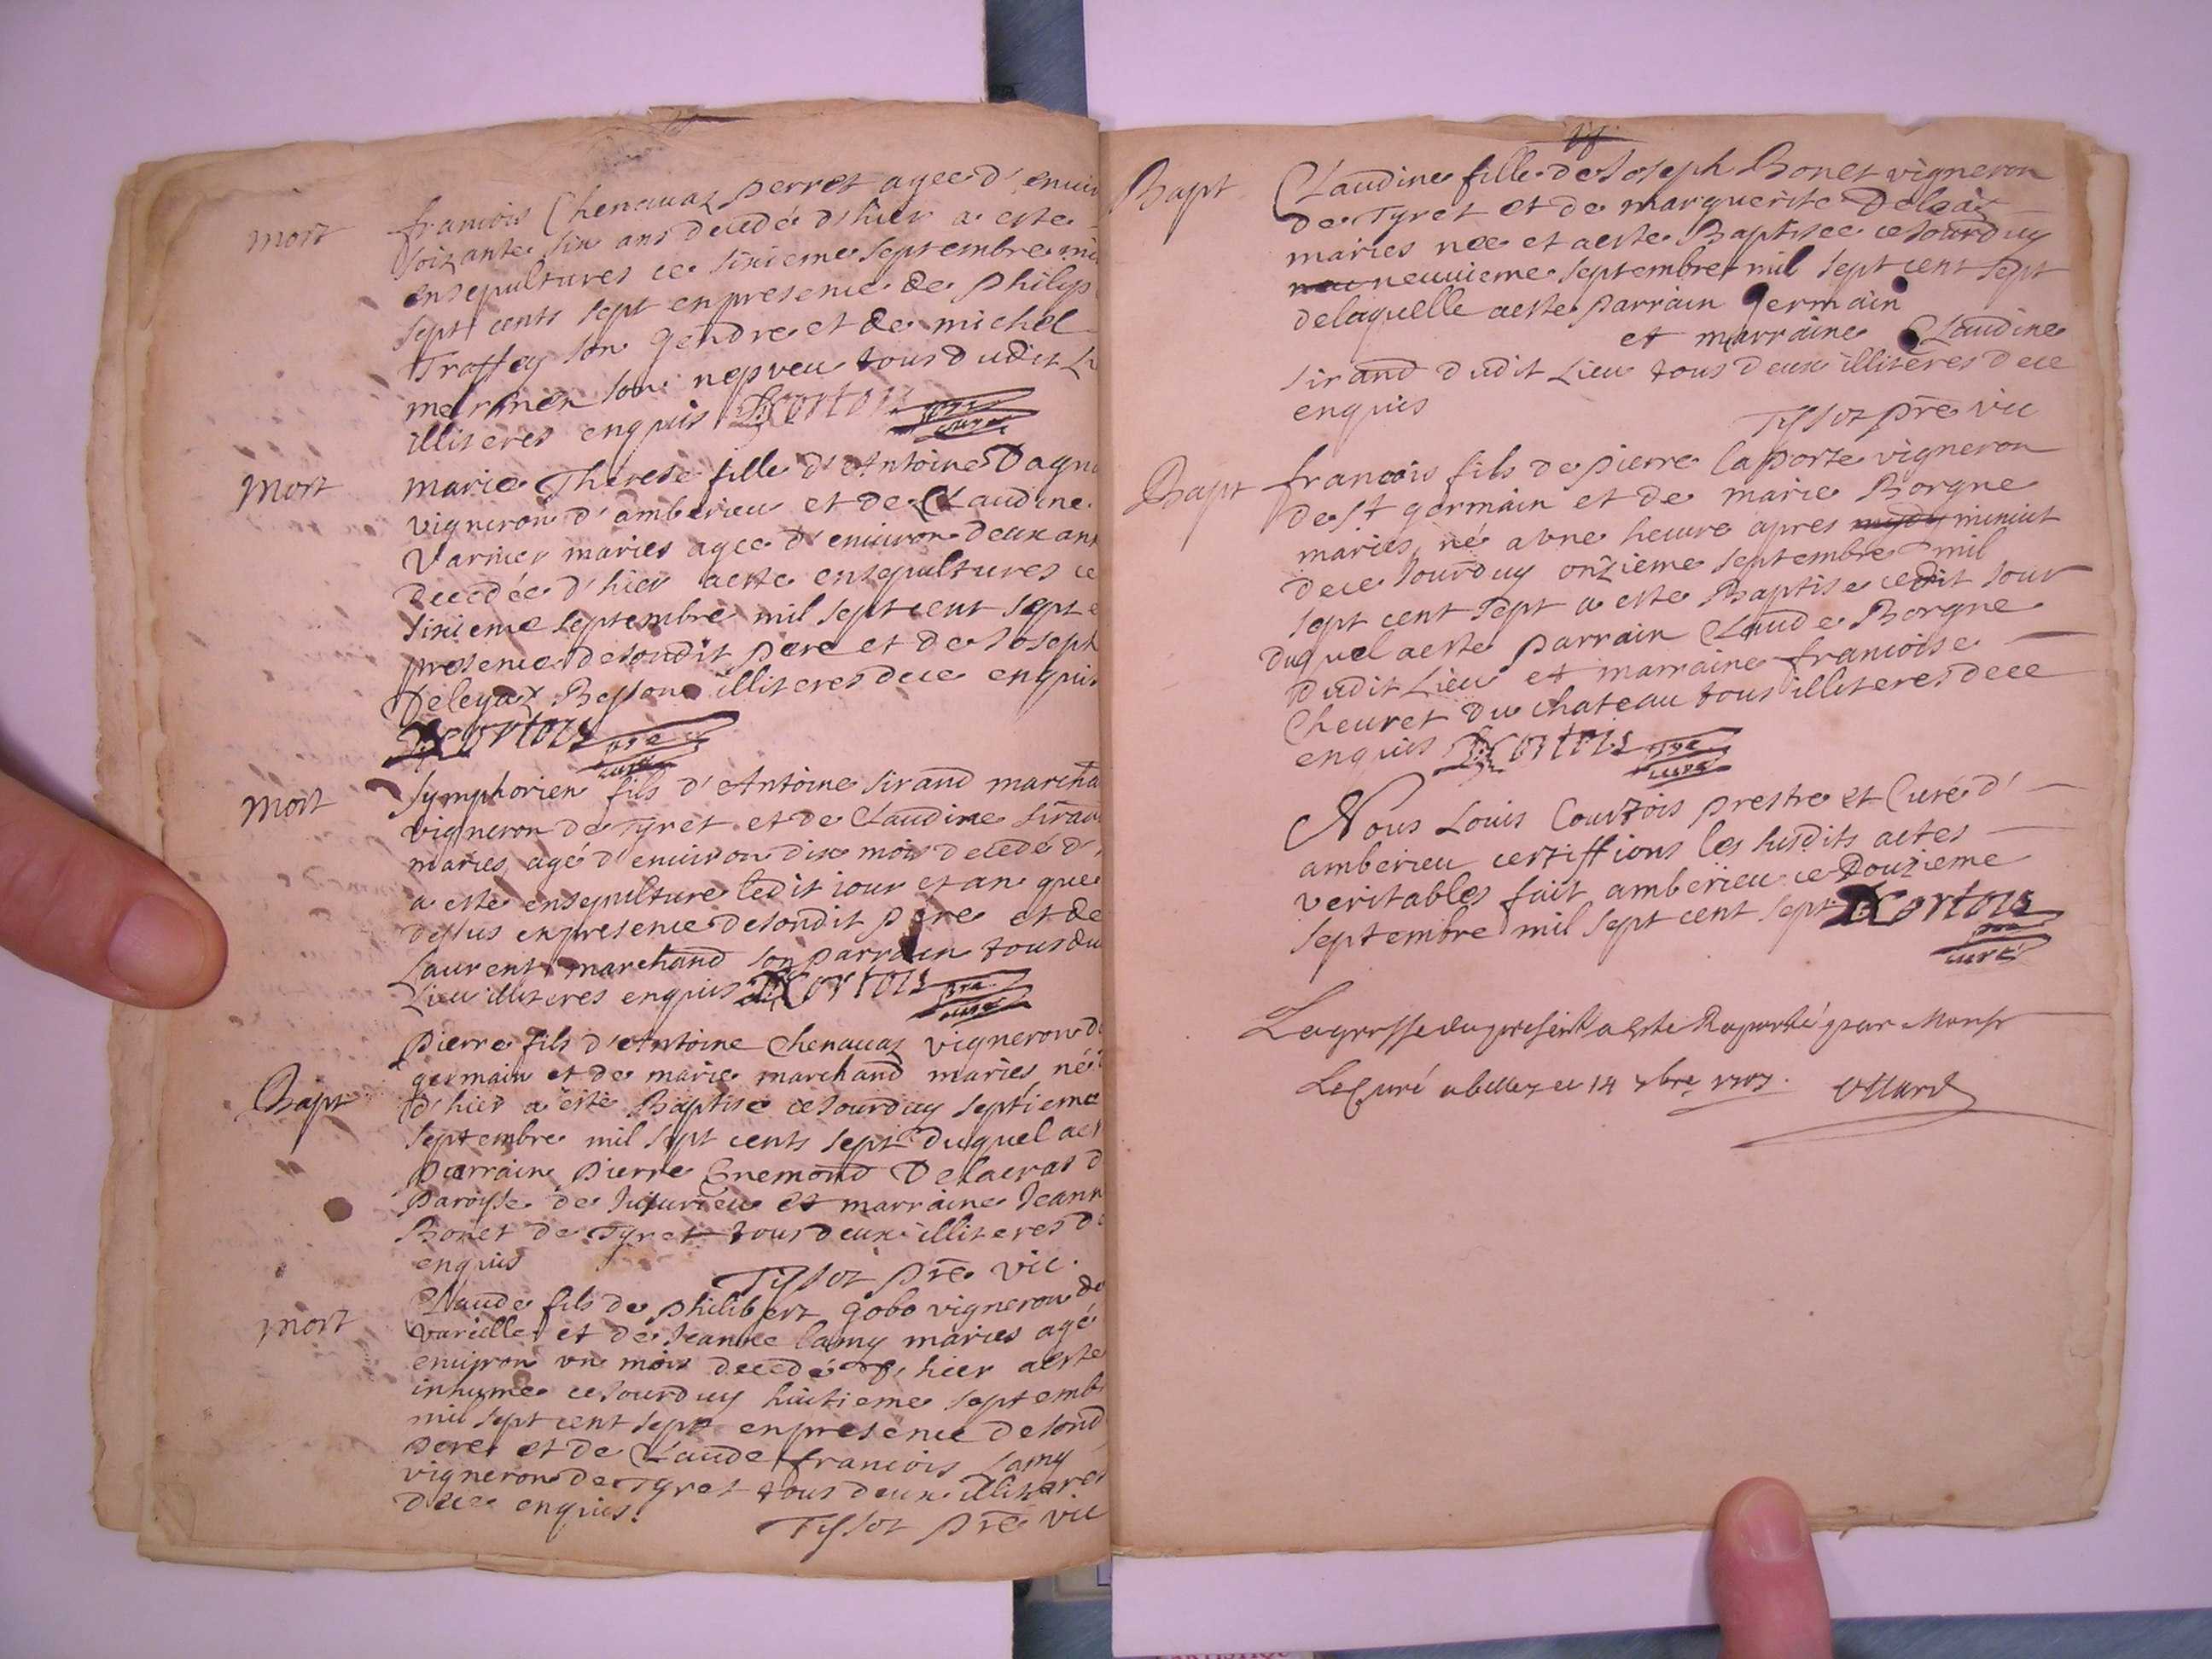 mort
francois Chenavaz perret agee d'envir
soixante six ans decedé d'hier a este
ensepultures ce sixieme septembre mil
sept cents sept en presence de philip
Traffey son gendre et de michel
son nepveu tous dudit L
illiteres enquis L Cortois pre curé
mort
marie Therese fille d'Antoine Dagni
vigneron d'amberieu et de Claudine
Varnier maries agee d'environ deux ans
decedée d'hier a este ensepultures ce
sixieme septembre mil sept cent sept e
presence desondit pere et de Joseph
Deleyaz Besson illiteres dece enquis
L Cortois pre curé
mort
Symphorien fils d'Antoine sirand marcha
vigneron de Tyret et de Claudine siran
maries, agé d'environ dix mois decedé d'
a este ensepulture ledit iour et an que
dessus en presence desondit pere et de
Laurent marchand son parrain tous du
Lieu illiteres enquis L Cortois pre curé
Bapt
pierre fils d'Antoine Chenavaz vigneron d
germain et de marie marchand maries né
d'hier a esté Baptisé ce Jourduy septieme
septembre mil sept cents sept duquel aes
parrain pierre Enemond Delacras d
paroisse de Jujurieu et marraine Jeann
Bonet de Tyret tous deux illiteres de
enquis
Tissot pre vic.
mort
Claude fils de philibert gobo vigneron de
vareille et de Jeanne lamy maries agé
environ un mois decedé d'hier aeste
inhume ce Jourduy huitieme septemb
mil sept cent sept en presence desond
pere et de Claude francois Lamy
vigneron de Tyret tous deux illiteres
dece enquis.
Tissot pre vic
Bapt
Claudine fille de Joseph Bonet vigneron
de Tyret et de marguerite Deleaz
maries nee et aeste Baptisee ce Jourduy
neuvieme septembre mil sept cent sept
delaquelle aeste parrain germain
et marraine Claudine
sirand dudit Lieu tous deux illiteres dece
enquis
Tissot pre vic
Bapt
francois fils de pierre laporte vigneron
de st germain et de marie Borgne
maries, né a une heure apres minuit
dece Jourduy onzieme septembre mil
sept cent sept a este Baptise cedit Jour
duquel aeste parrain Claude Borgne
dudit Lieu et marraine francoise
Cheuret du chateau tous illiteres dece
enquis L Cortois pre curé
Nous Louis Courtois prestre et Curé d'
amberieu certiffions les susdits actes
veritables fait amberieu ce Douzieme
septembre mil sept cent sept L Cortois
pre curé
La grosse du present a Este Raporté par Monsr
Le Curé a belley ce 14 7bre 1707. Villard